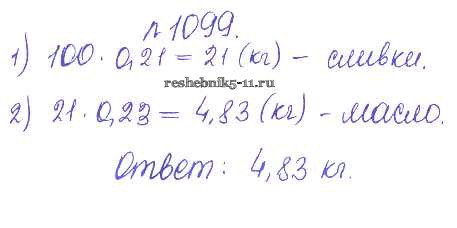 №1099.
1) 100 · 0,21 = 21 (кг) - сливки.
reshebnik5-11.ru
2) 21 · 0,23 = 4,83 (кг) - масло.
Ответ: 4,83 кг.